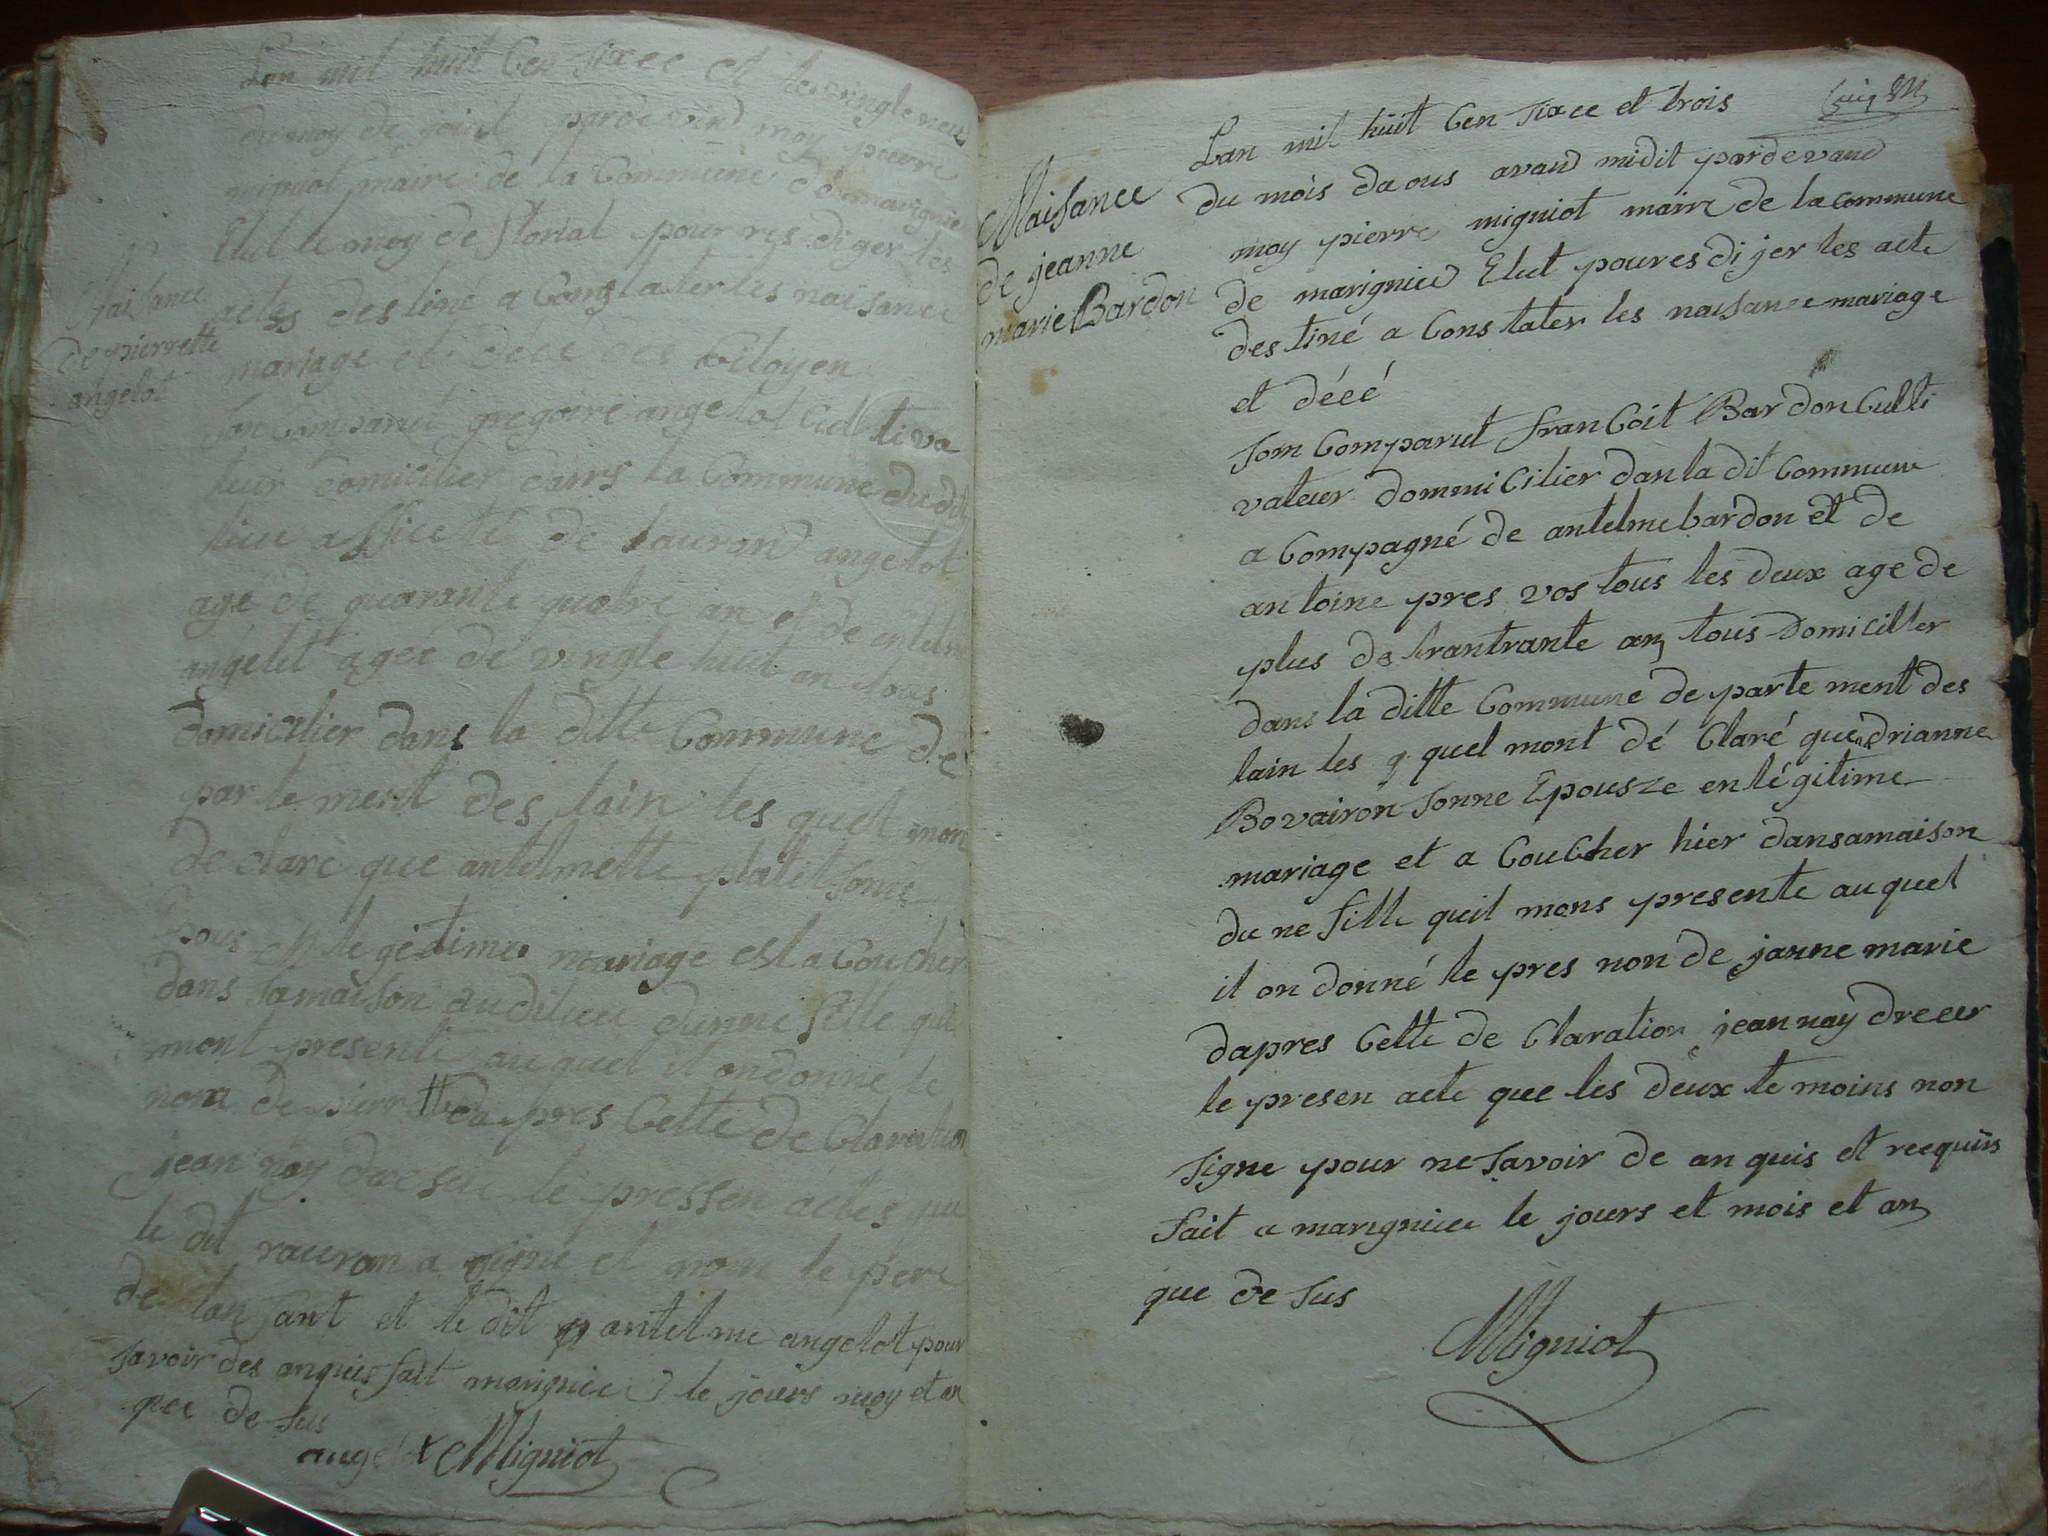 Lan mil huit Cen sixce et le vingte neuf
du moy de jouil par de vand moy pierre
migniot maire de la Commune de marignieu
Elut le moy de florial pour res diger les
Naisance
de pierrette
angelot
actes des tiné a Cons taterles naisance
mariage et décé des Citoyen
son Comparut gregoire angelot Cultiva
teur domicilier dans la Commune du dit
lieu assiceté de lauran angelot
agé de quarante quatre an et de antelm
angelot ageé de vingte huit an tous
domicilier dans la ditte Commune de
par te ment des lain les quel mon
de claré que antelmette platit sonne
Epouse en le gétime mariage est a Coucher
dans samaison du dit lieu dunne fille quil
mont presenté auquel il on donné le
nom de pierrette da pres Cette de Claration
jean nay drecer le pressen actes que
le dit rauran a signé et nom le pere
de lan fant et le dit antelme angelot pour
savoir des anquis fait marignieu le jours moy et an
que de sus
angelot Migniot
Naisance
de jeanne
marie Bardon
Lan mil huit Cen sixce et trois
du mois da ous avand midit pardevand
moy pierre migniot maire de la commune
de marignieu Elut pour es di jer les acte
des tiné a Cons tater les naisance mariage
et déeé
som Comparut franCoit Bardon Culti
vateur dommiCilier dan la dit Commune
a Compagné de antelme bardon et de
antoine pres vos tous les deux age de
plus de trantrante an tous domicilier
dans la ditte Commune de parte ment des
lain les q quel mont dé Claré que andrianne
Bovairon sonne Epousze en légitime
mariage et a CouCher hier dansamaison
du ne fille queil mons presente auquel
il on donné le pres non de janne marie
dapres Cette de Claration jean nay dreeer
le presen acte que les deux te moins non
signe pour ne savoir de an quis et reequis
fait a marignieu le jours et mois et an
que de sus
Migniot